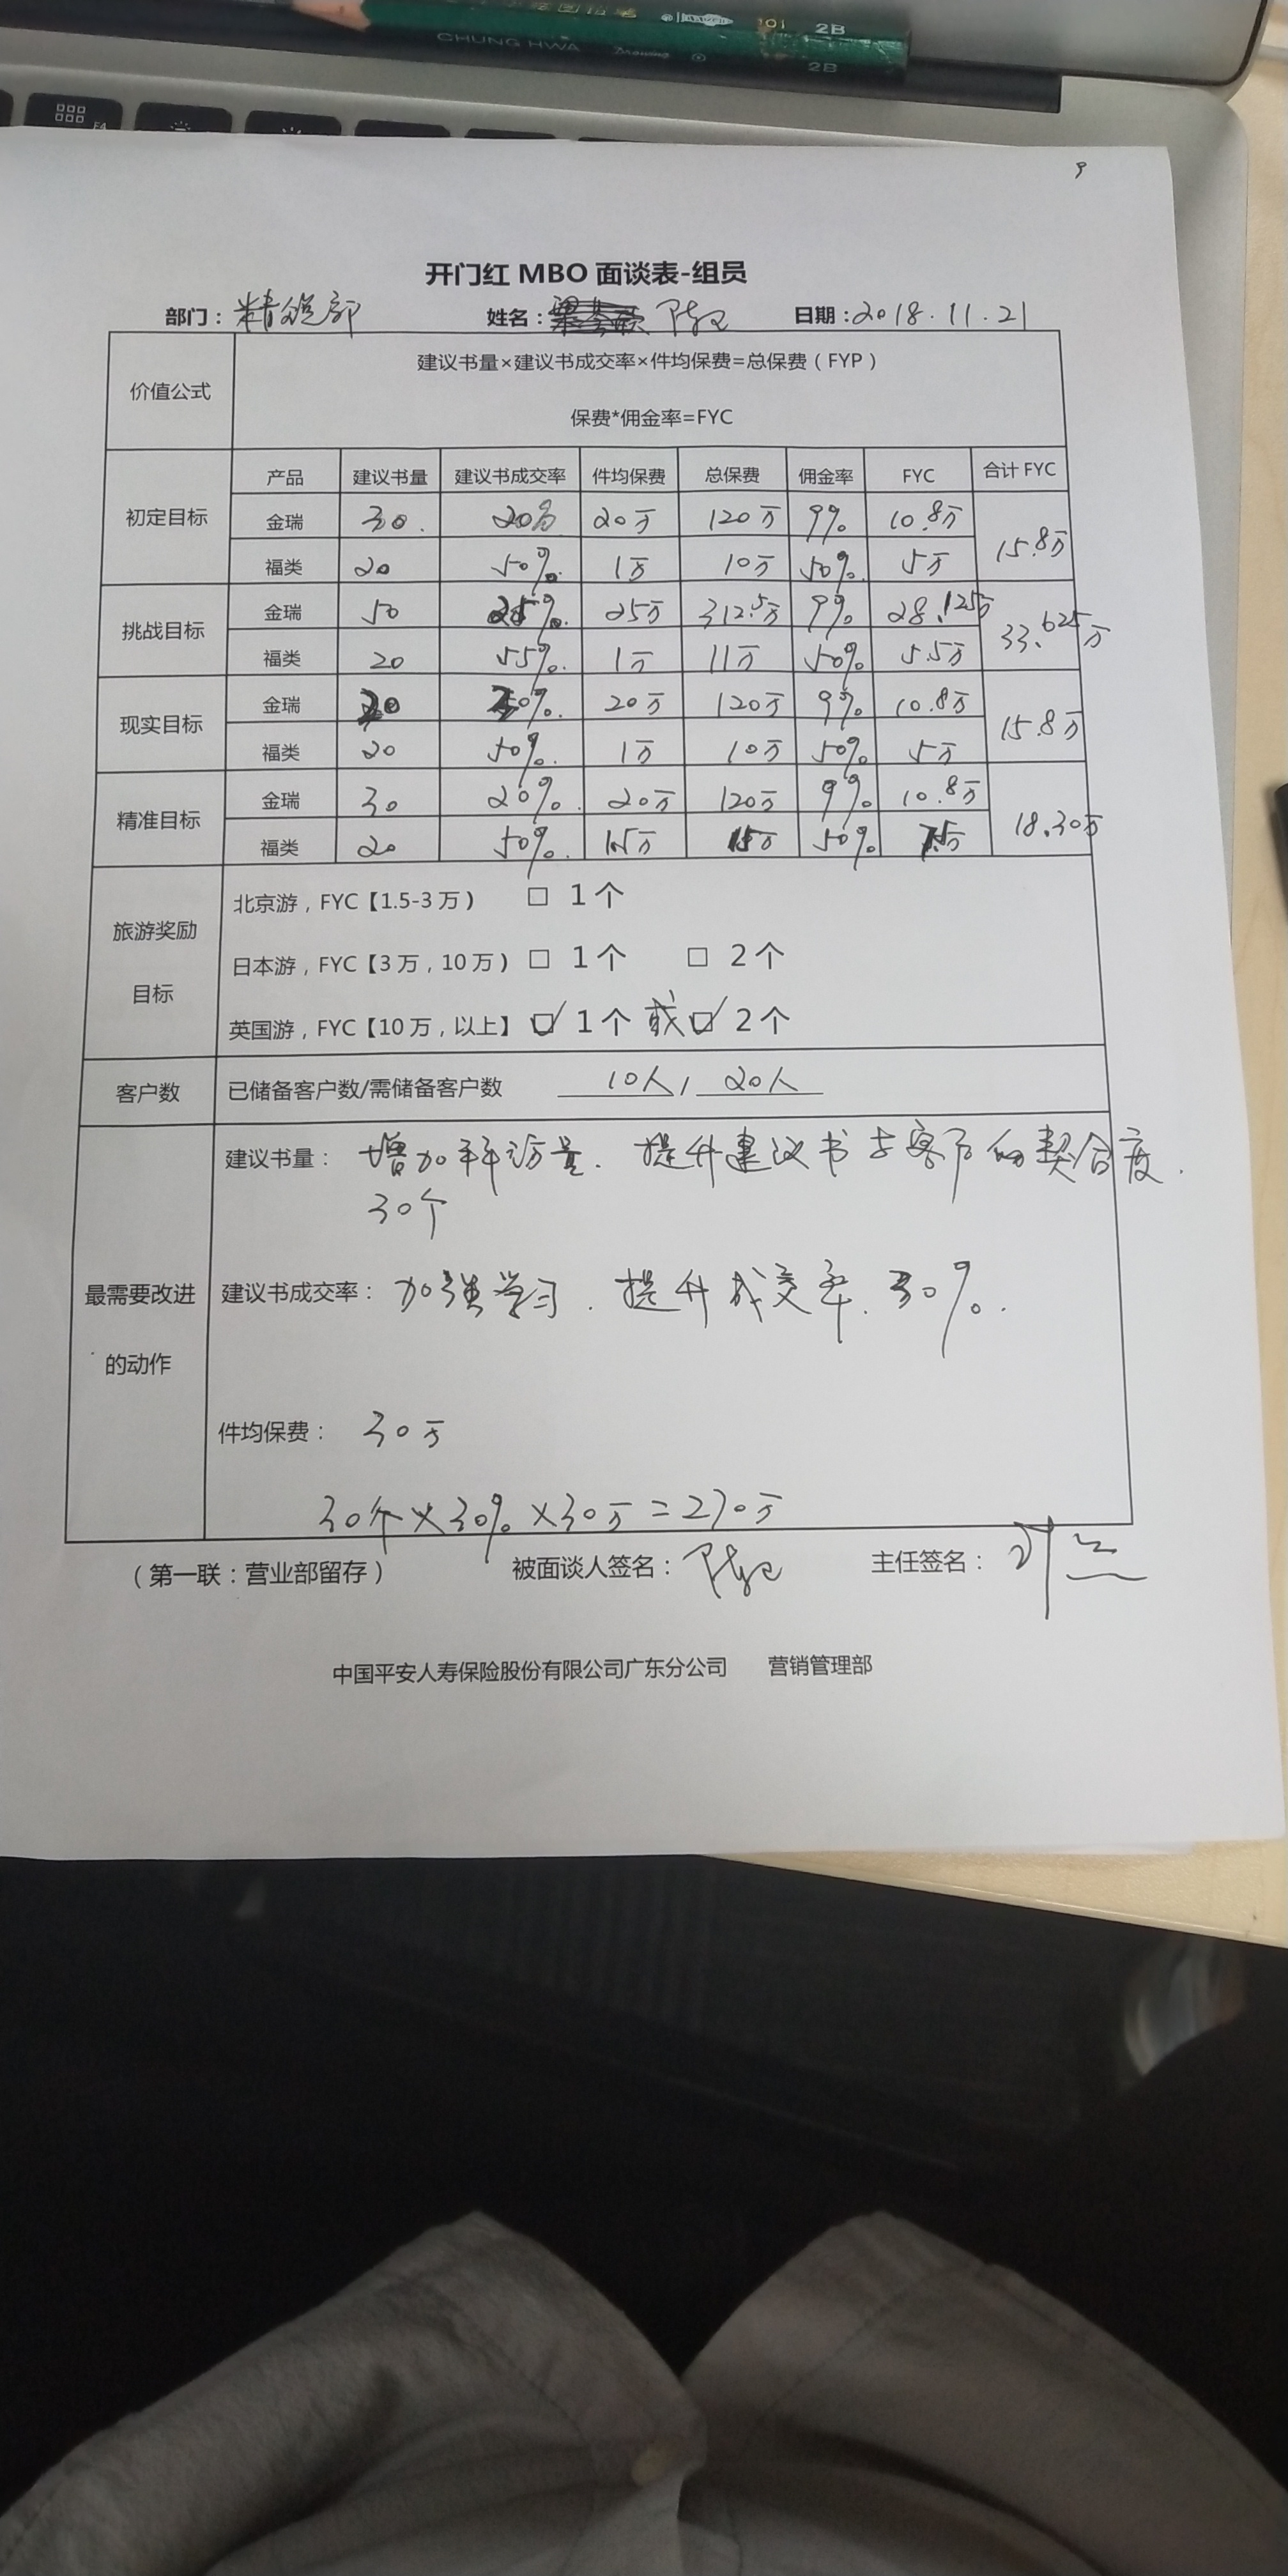 101 2B
CHUNG HWA Drawing 2B
F4
9
开门红 MBO 面谈表-组员
部门: 姓名: 日期:2018.11.21
价值公式
建议书量×建议书成交率×件均保费=总保费(FYP)
保费*佣金率=FYC
产品 建议书量 建议书成交率 件均保费 总保费 佣金率 FYC 合计 FYC
初定目标
金瑞 30. 20% 20万 120万 9% 10.8万
15.8万
福类 20 50%. 1万 10万 50%. 5万
挑战目标
金瑞 50 25%. 25万 312.5万 9% 28.125万
33.625万
福类 20 55%. 1万 11万 50% 5.5万
现实目标
金瑞 30 20%. 20万 120万 9% 10.8万
15.8万
福类 20 50%. 1万 10万 50% 5万
精准目标
金瑞 30 20%. 20万 120万 9% 10.8万
18.30万
福类 20 50%. 1.5万 15万 50% 7.5万
旅游奖励
目标
北京游,FYC【1.5-3 万) □ 1 个
日本游,FYC【3 万,10 万) □ 1 个 □ 2 个
英国游,FYC【10 万,以上】 ☑ 1 个 或 ☑ 2 个
客户数 已储备客户数/需储备客户数 10人/ 20人
最需要改进
的动作
建议书量: 增加拜访量. 提升建议书与客户的契合度.
30个
建议书成交率: 加强学习. 提升成交率. 30%.
件均保费: 30万
30个×30%×30万=270万
(第一联:营业部留存) 被面谈人签名: 主任签名:
中国平安人寿保险股份有限公司广东分公司 营销管理部